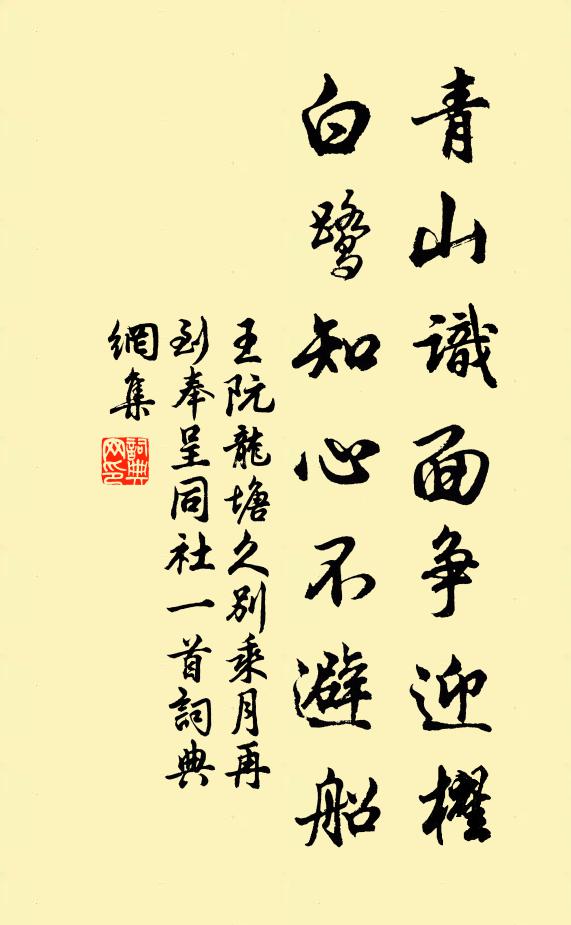 青山識面争迎櫂
白鷺知心不避船
王阮龍塘久别乘月再
到奉呈同社一首詞典
網集
詞典
网印